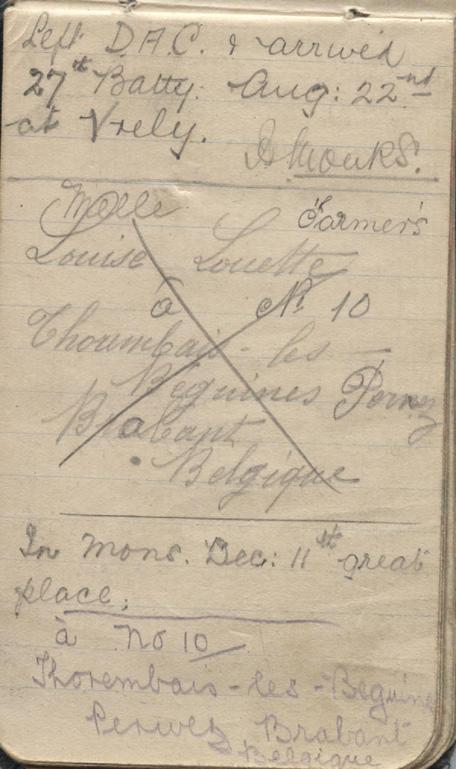 Left D.A.C. & arrived
27th Batty. Aug: 22nd
at Vrely.
Molle Farmers
Louise Louette
à No 10
Thorembais-les-
Béguines Perwez
Brabant
Belgique
In Mons. Dec: 11th great
place.
à No 10
Thorembais-les-Beguines
Perwez Brabant
Belgique